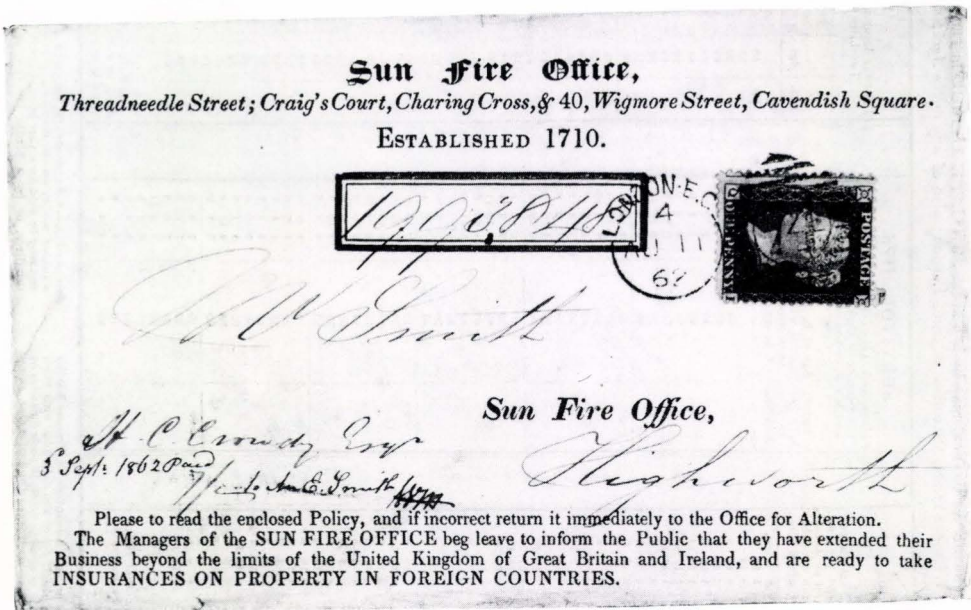 Sun Fire Office,
Threadneedle Street; Craig's Court, Charing Cross, & 40, Wigmore Street, Cavendish Square.
ESTABLISHED 1710.
1993848
LONDON·E.C
4
AU 11
62
POSTAGE
ONE PENNY
Smith
Sun Fire Office,
H. C. Crowdy Esqr
Highworth
3 Sept: 1862 Paid
to E. Smith
Please to read the enclosed Policy, and if incorrect return it immediately to the Office for Alteration.
The Managers of the SUN FIRE OFFICE beg leave to inform the Public that they have extended their
Business beyond the limits of the United Kingdom of Great Britain and Ireland, and are ready to take
INSURANCES ON PROPERTY IN FOREIGN COUNTRIES.